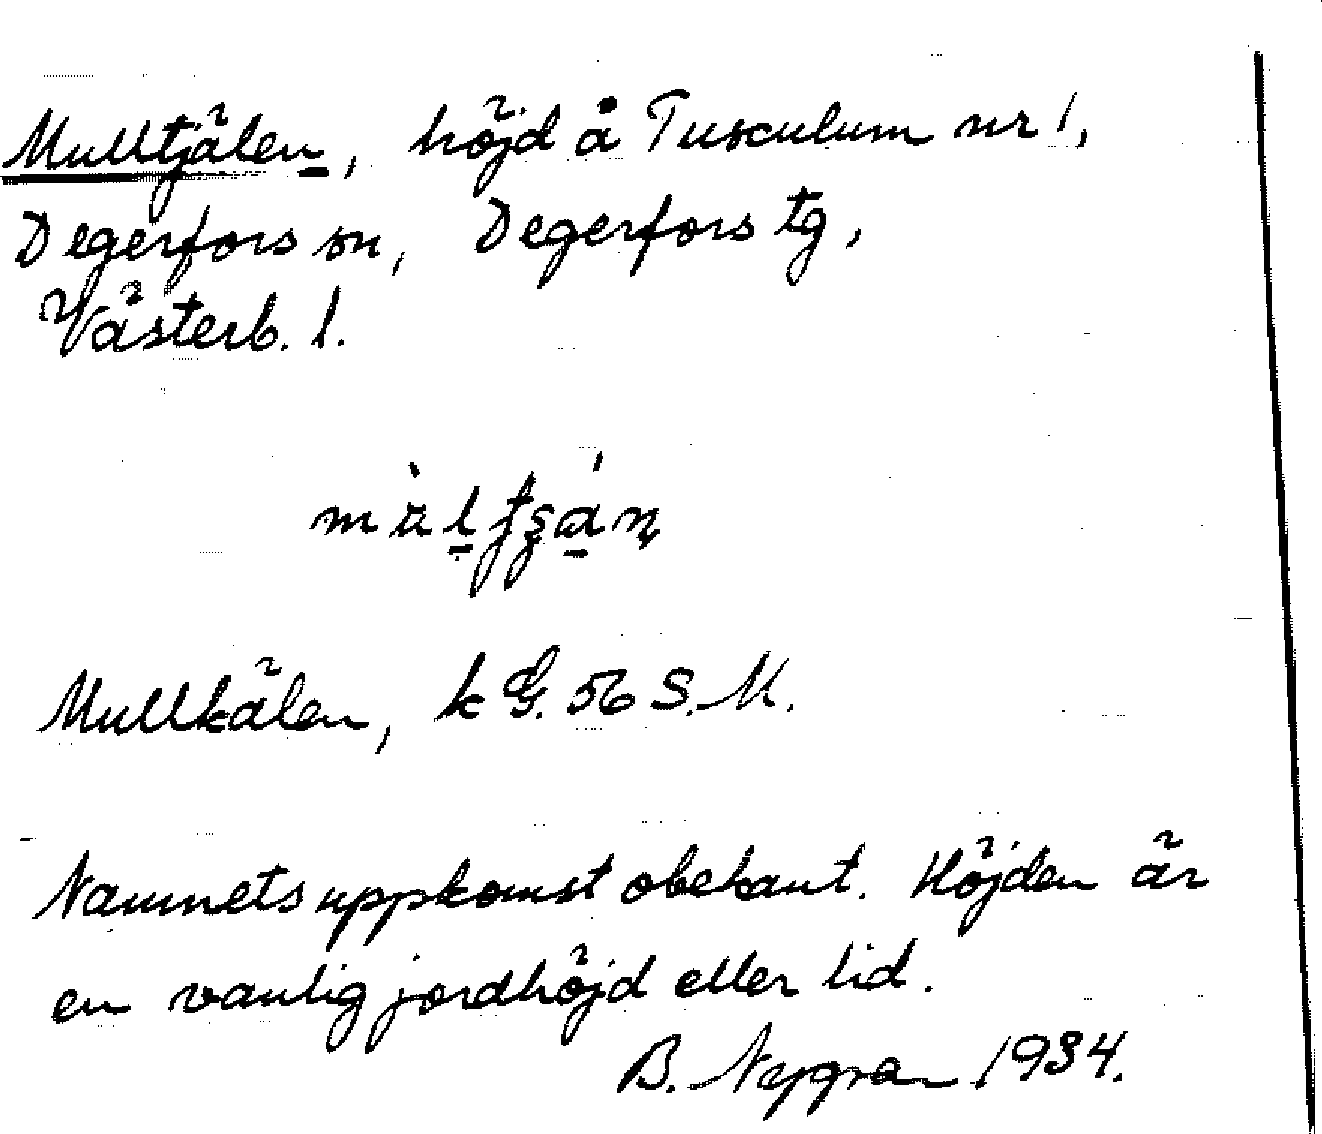 Mulltjälen, höjd å Tusculum nr 1,
Degerfors sn, Degerfors tg,
Västerb. l.
Mullkälen, k G. 56 S.M.
Namnets uppkomst obekant. Höjden är
en vanlig jordhöjd eller lid.
B. Nygran 1934.